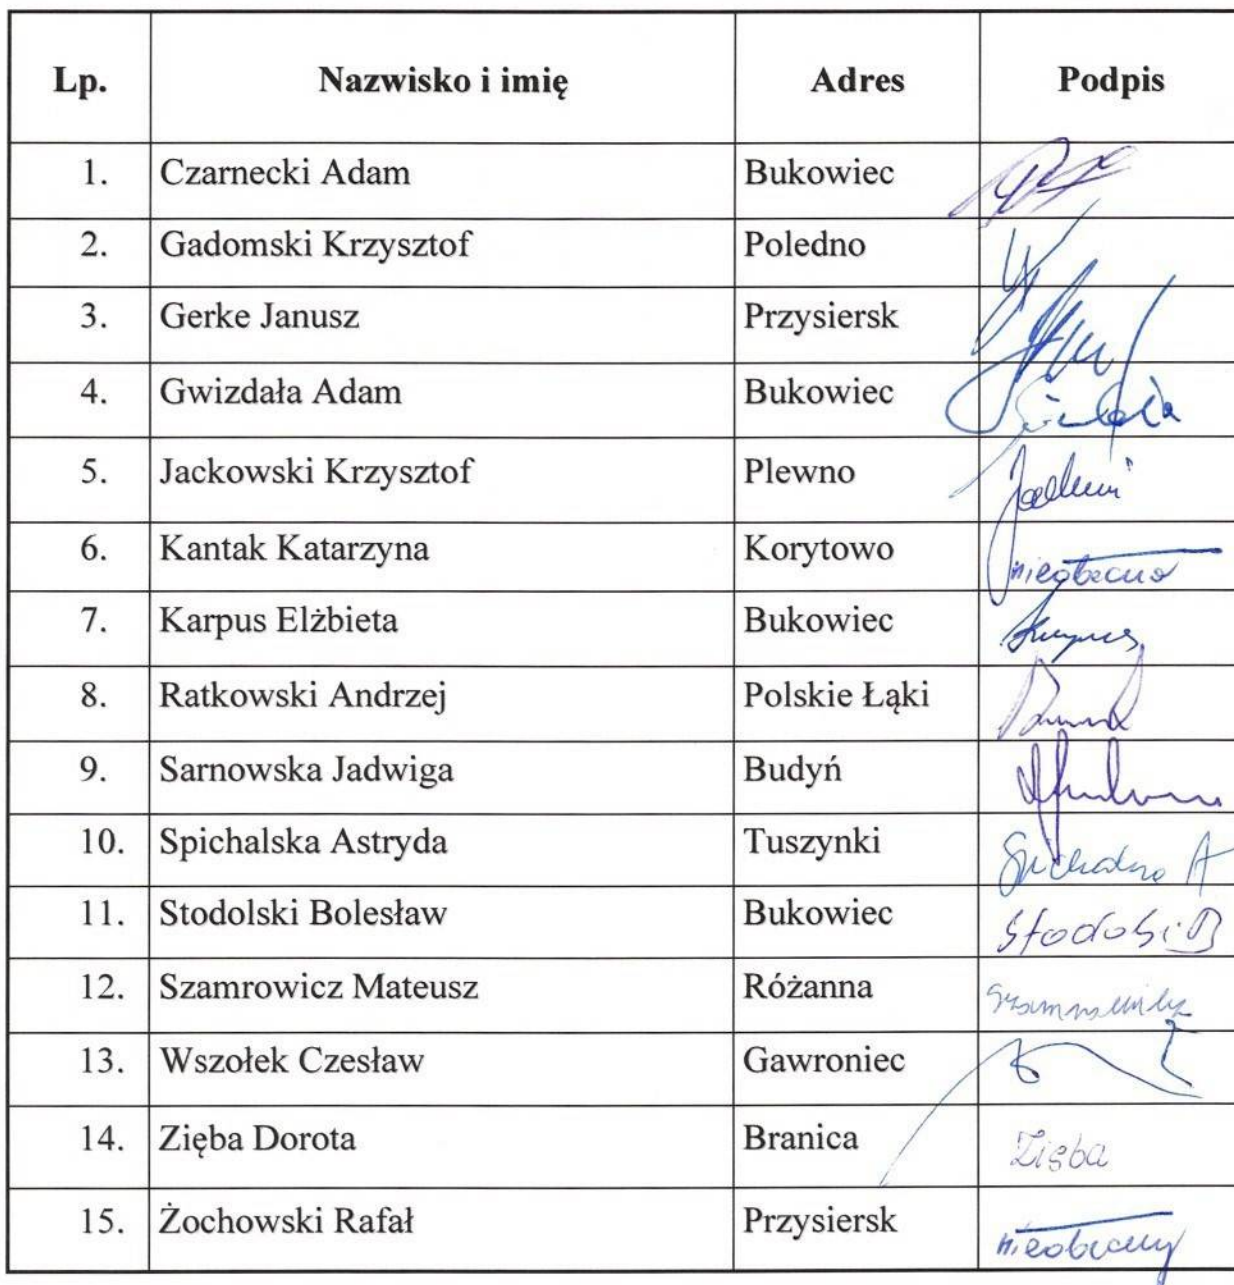 Lp. Nazwisko i imię Adres Podpis
1. Czarnecki Adam Bukowiec
2. Gadomski Krzysztof Poledno
3. Gerke Janusz Przysiersk
4. Gwizdała Adam Bukowiec
5. Jackowski Krzysztof Plewno
6. Kantak Katarzyna Korytowo nieobecna
7. Karpus Elżbieta Bukowiec
8. Ratkowski Andrzej Polskie Łąki
9. Sarnowska Jadwiga Budyń
10. Spichalska Astryda Tuszynki
11. Stodolski Bolesław Bukowiec
12. Szamrowicz Mateusz Różanna
13. Wszołek Czesław Gawroniec
14. Zięba Dorota Branica Zięba
15. Żochowski Rafał Przysiersk nieobecny